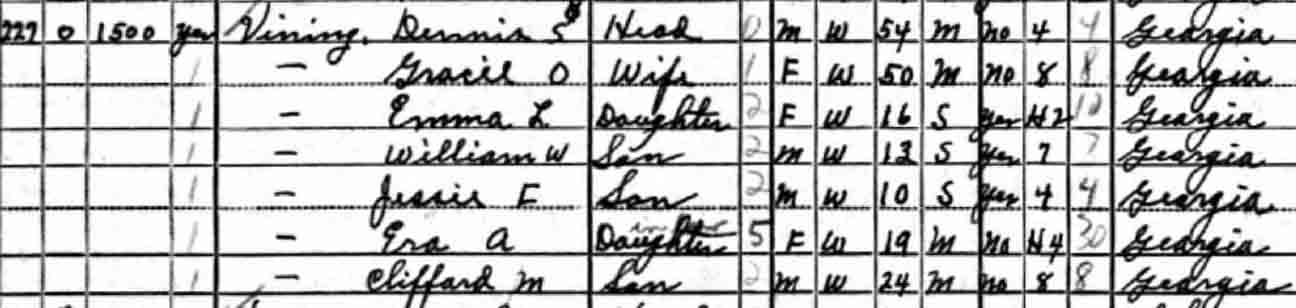 227 0 1500 yes Vining, Dennis S Head 0 M W 54 M no 4 4 Georgia
1 — Gracie O Wife 1 F W 50 M no 8 8 Georgia
1 — Emma L Daughter 2 F W 16 S yes H2 10 Georgia
1 — William W Son 2 M W 13 S yes 7 7 Georgia
1 — Jessie F Son 2 M W 10 S yes 4 4 Georgia
1 — Era A Daughter 5 F W 19 M no H4 30 Georgia
1 — Clifford M Son 2 M W 24 M no 8 8 Georgia